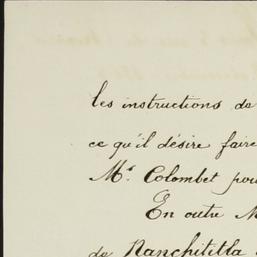 les instructions de
ce qu'il désire faire
Mr. Colombet pour
En outre M
de Nanchititla